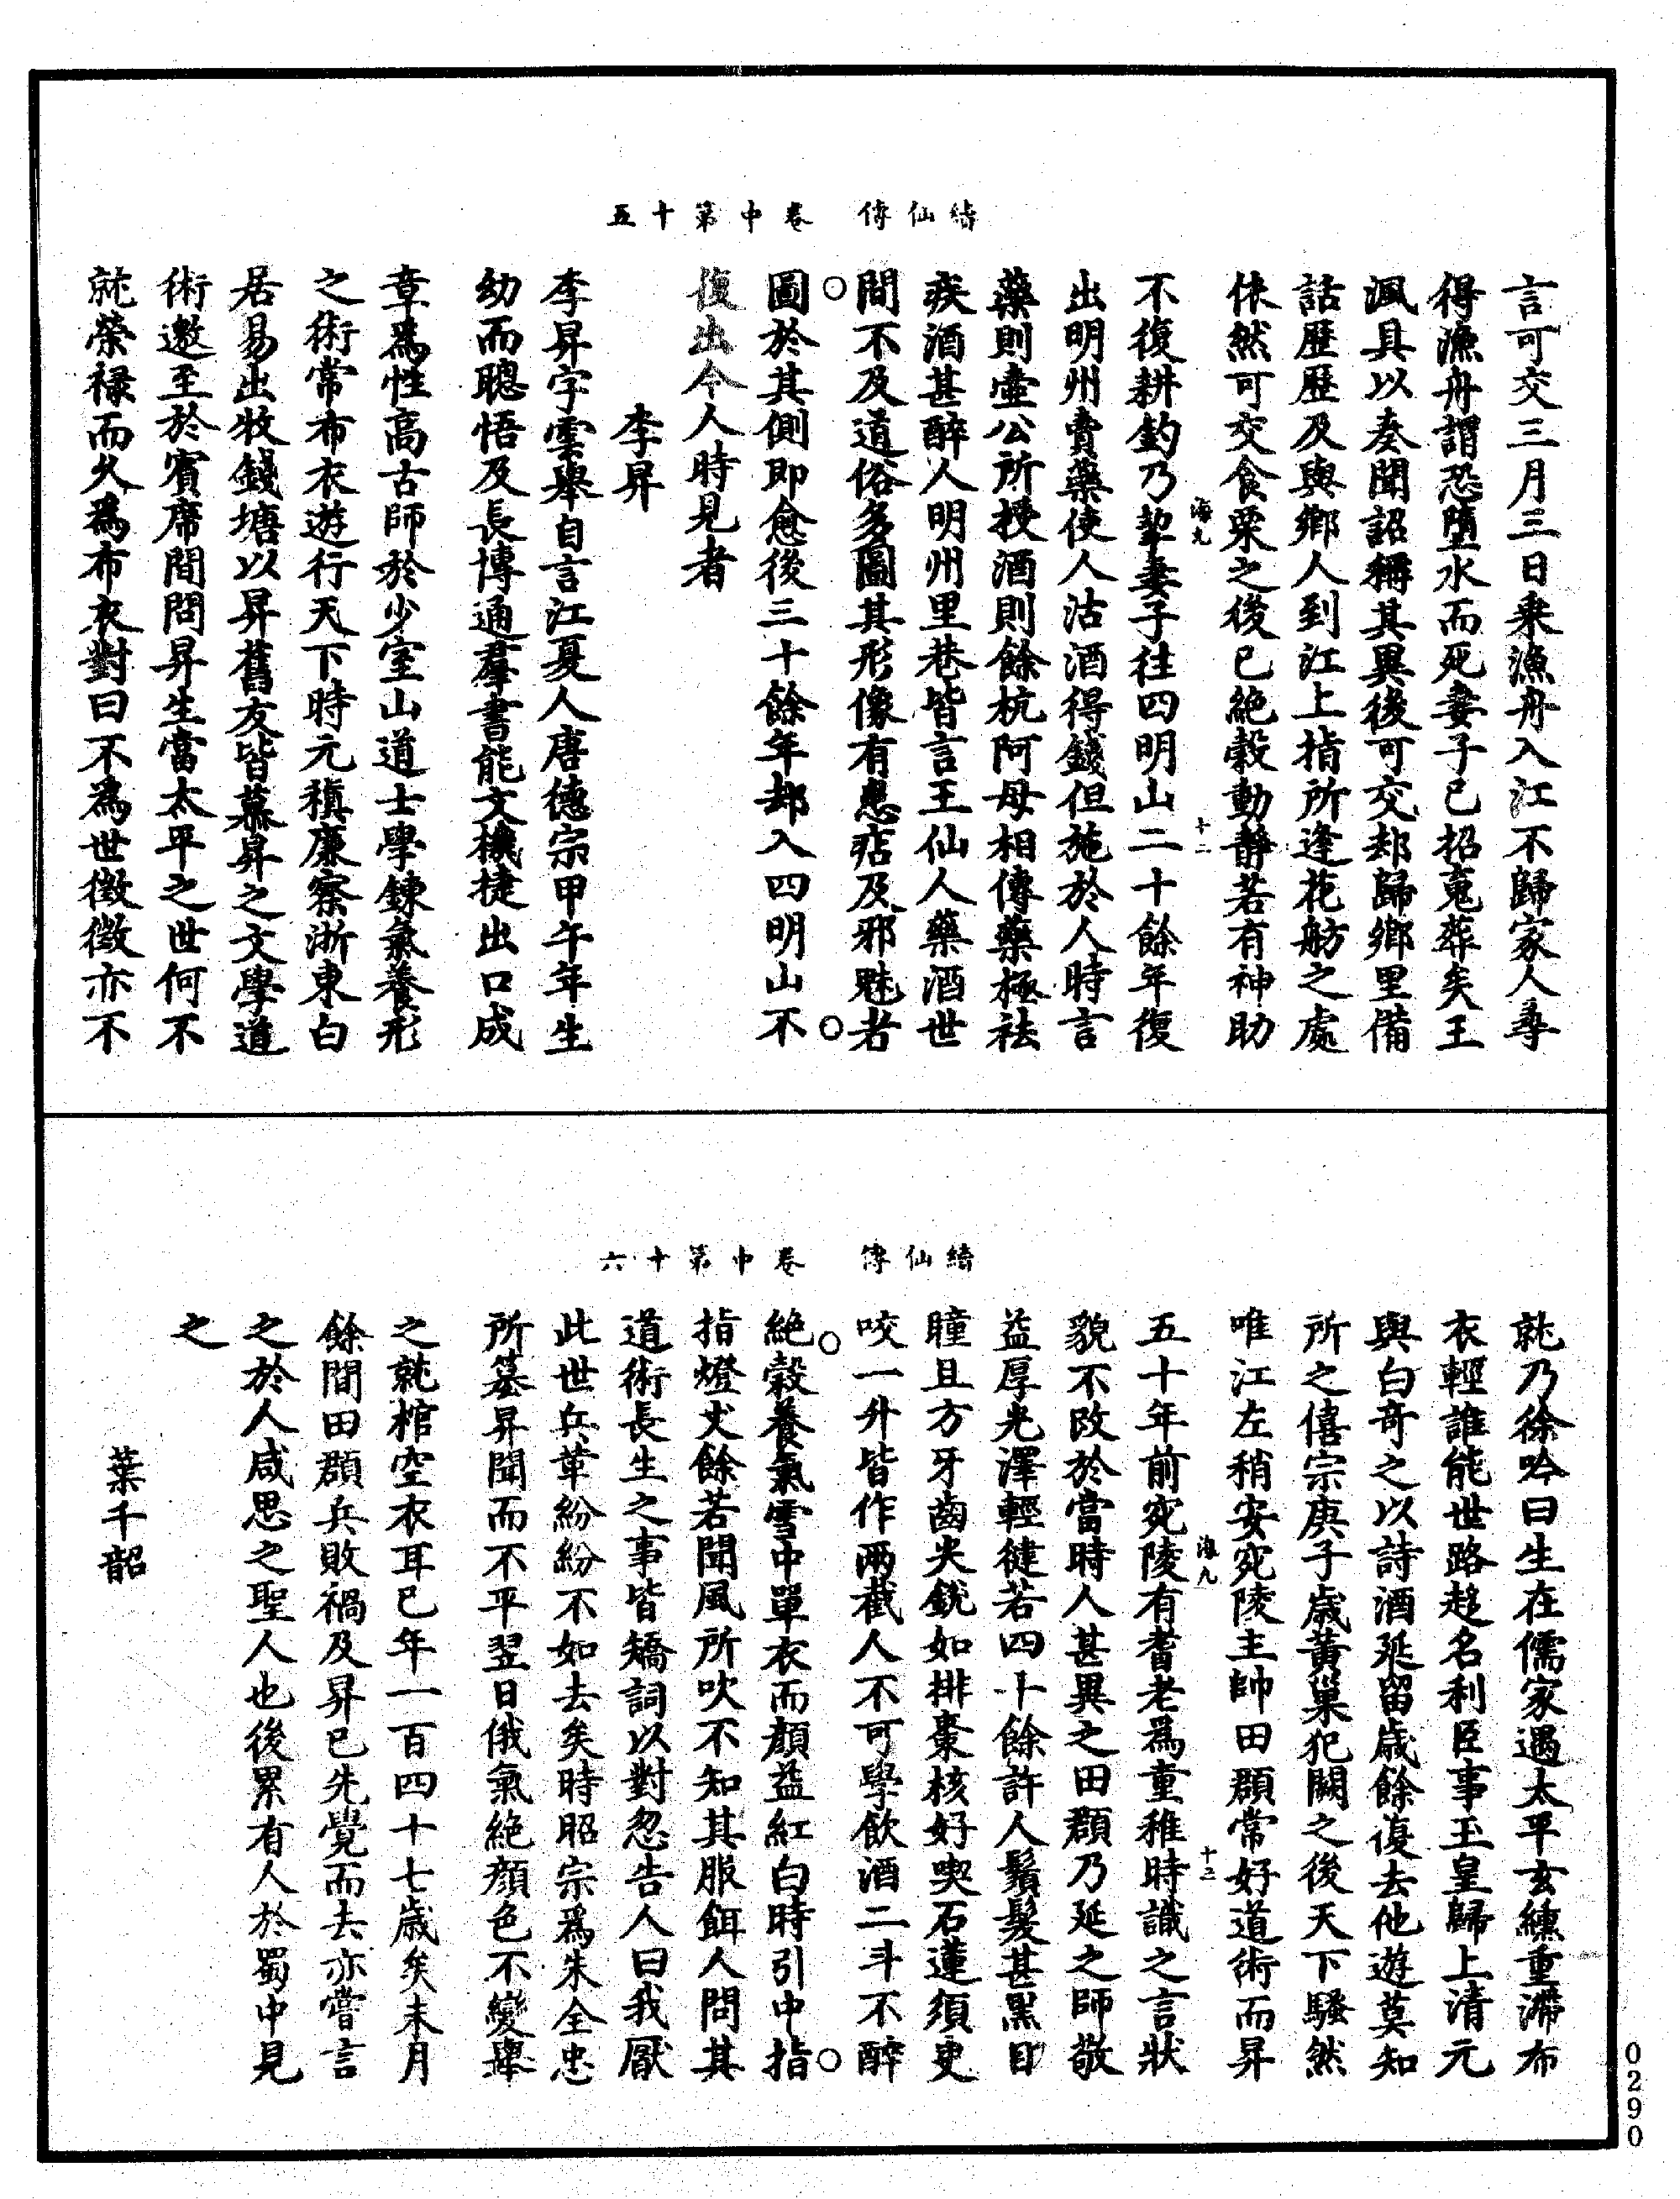 續仙傳　卷中第十五
言可交三月三日乘漁舟入江不歸家人尋
得漁舟謂恐墮水而死妻子已招䰟葬矣王
渢具以奏聞詔稱其異後可交却歸鄉里備
話歷歷及與鄉人到江上指所逢花舫之處
依然可交食粟之後已絶穀動靜若有神助
海九　十二
不復耕釣乃挈妻子往四明山二十餘年復
出明州賣藥使人沽酒得錢但施於人時言
藥則壷公所授酒則餘杭阿母相傳藥極祛
疾酒甚醉人明州里巷皆言王仙人藥酒世
間不及道俗多圖其形像有患痁及邪魅者
圖於其側即愈後三十餘年却入四明山不
復出今人時見者
李昇
李昇字雲舉自言江夏人唐德宗甲午年生
幼而聰悟及長博通羣書能文機捷出口成
章爲性高古師於少室山道士學鍊氣養形
之術常布衣遊行天下時元稹廉察浙東白
居易出牧錢塘以昇舊友皆慕昇之文學道
術邀至於賓席間問昇生當太平之世何不
就榮祿而久爲布衣對曰不爲世徴徴亦不
續仙傳　卷中第十六
就乃徐吟曰生在儒家遇太平玄纁重滯布
衣輕誰能世路趍名利臣事玉皇歸上清元
與白奇之以詩酒延留歲餘復去他遊莫知
所之僖宗庚子歲黃巢犯闕之後天下騷然
唯江左稍安宛陵主帥田頵常好道術而昇
海九　十三
五十年前宛陵有耆老爲童稚時識之言狀
貌不改於當時人甚異之田頵乃延之師敬
益厚光澤輕健若四十餘許人鬚髮甚黑目
瞳且方牙齒尖銳如排棗核好喫石蓮須臾
咬一升皆作兩截人不可學飲酒二斗不醉
絶穀養氣雪中單衣而顏益紅白時引中指
指燈丈餘若聞風所吹不知其服餌人問其
道術長生之事皆矯詞以對忽告人曰我厭
此世兵革紛紛不如去矣時昭宗爲朱全忠
所簒昇聞而不平翌日俄氣絶顏色不變舉
之就棺空衣耳已年一百四十七歲矣未月
餘間田頵兵敗禍及昇已先覺而去亦嘗言
之於人咸思之聖人也後累有人於蜀中見
之
葉千韶
0290